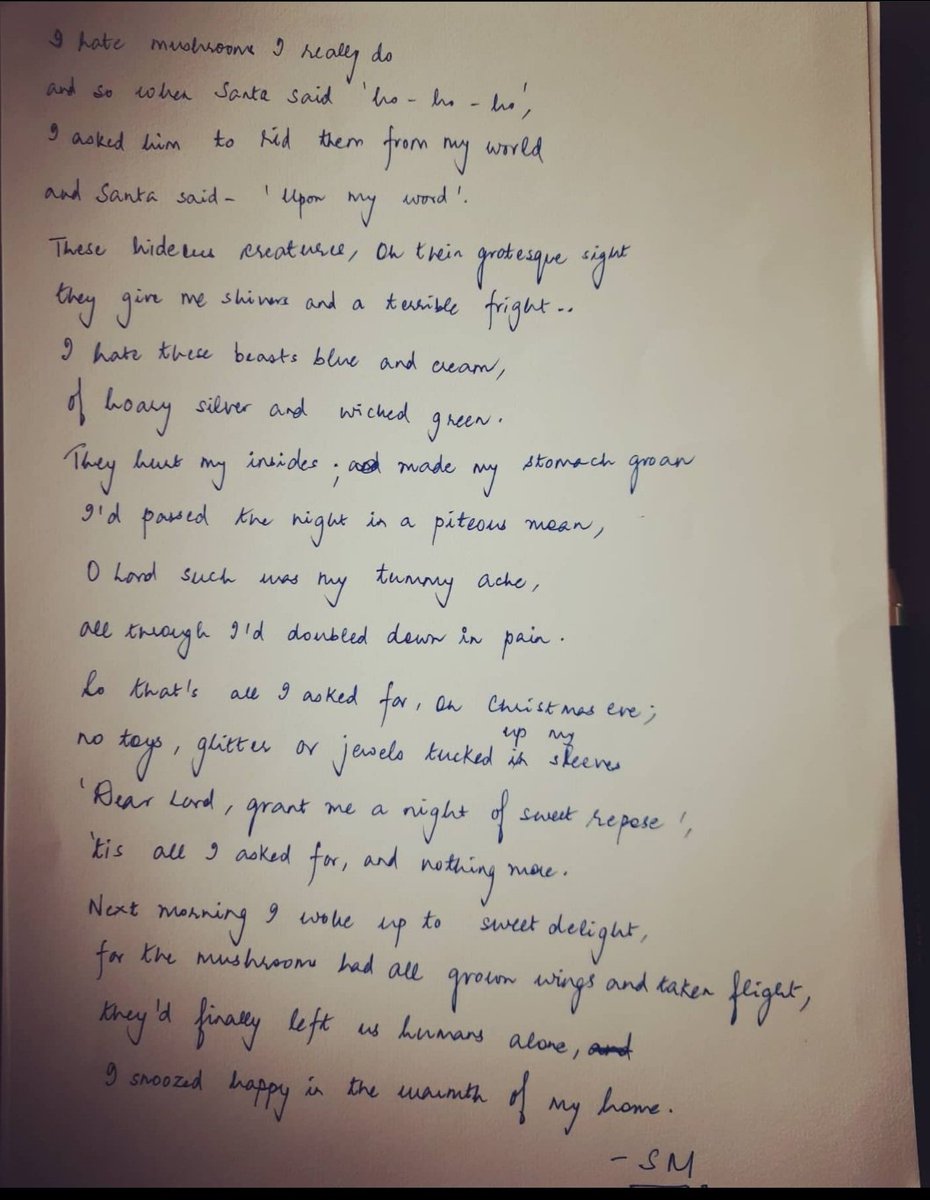 I hate mushrooms I really do
and so when Santa said 'ho - ho - ho',
I asked him to rid them from my world
and Santa said - 'Upon my word'.
These hideous creatures, Oh their grotesque sight
they give me shivers and a terrible fright..
I hate these beasts blue and cream,
of hoary silver and wicked green.
They hurt my insides ; made my stomach groan
I'd passed the night in a piteous moan,
O Lord such was my tummy ache,
all through I'd doubled down in pain.
So that's all I asked for, on Christmas eve;
no toys, glitter or jewels tucked up my sleeves
'Dear Lord, grant me a night of sweet repose',
'tis all I asked for, and nothing more.
Next morning I woke up to sweet delight,
for the mushrooms had all grown wings and taken flight,
they'd finally left us humans alone, and
I snoozed happy in the warmth of my home.
- SM